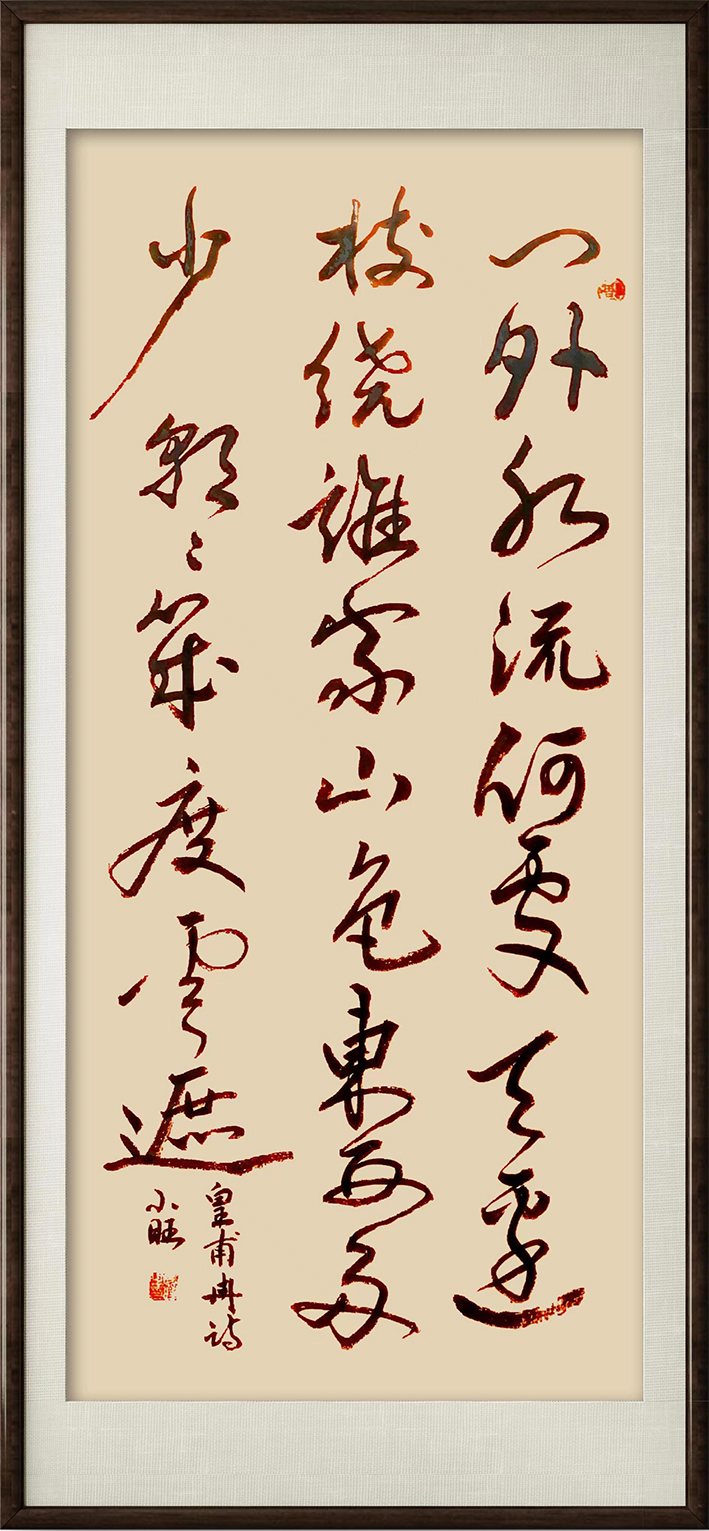 门外水流何處天邊
树绕誰家山色東西多
少朝々幾度雲遮
皇甫冉诗
小旺